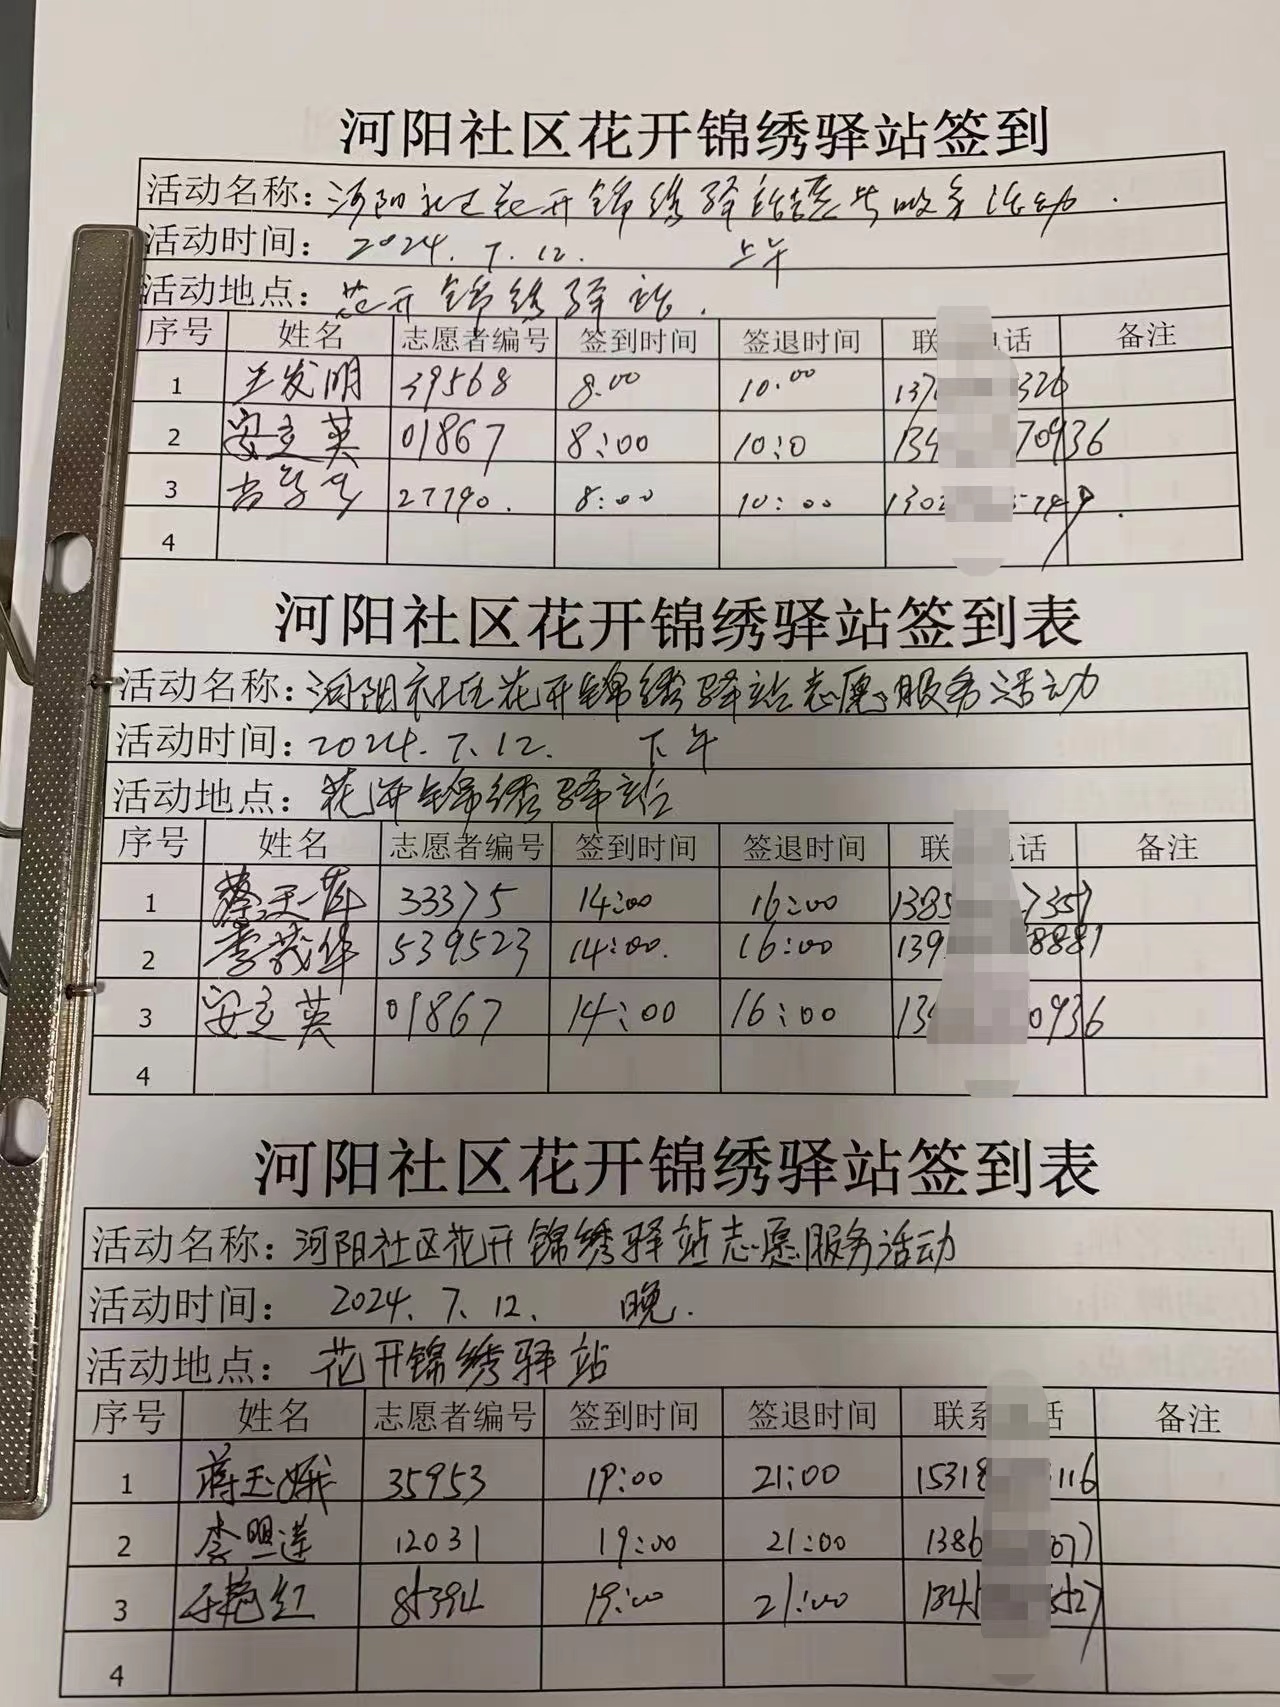 河阳社区花开锦绣驿站签到
活动名称：河阳社区花开锦绣驿站志愿服务活动.
活动时间：2024.7.12. 上午
活动地点：花开锦绣驿站.
序号 姓名 志愿者编号 签到时间 签退时间 联 电话 备注
1 兰发明 39568 8.00 10.00 137 326
2 安立英 01867 8:00 10:0 134 70936
3 27790. 8:00 10:00 1302 5749.
4
河阳社区花开锦绣驿站签到表
活动名称：河阳社区花开锦绣驿站志愿服务活动
活动时间：2024.7.12. 下午
活动地点：花开锦绣驿站
序号 姓名 志愿者编号 签到时间 签退时间 联 电话 备注
1 蔡天萍 33375 14:00 16:00 1385 7357
2 李茂华 539523 14:00. 16:00 139 8881
3 安立英 01867 14:00 16:00 134 0936
4
河阳社区花开锦绣驿站签到表
活动名称：河阳社区花开锦绣驿站志愿服务活动
活动时间：2024.7.12. 晚.
活动地点：花开锦绣驿站
序号 姓名 志愿者编号 签到时间 签退时间 联系 话 备注
1 蒋玉娥 35953 19:00 21:00 15318 116
2 李照莲 12031 19:00 21:00 1386 077
3 于艳红 85394 19:00 21:00 1345 527
4